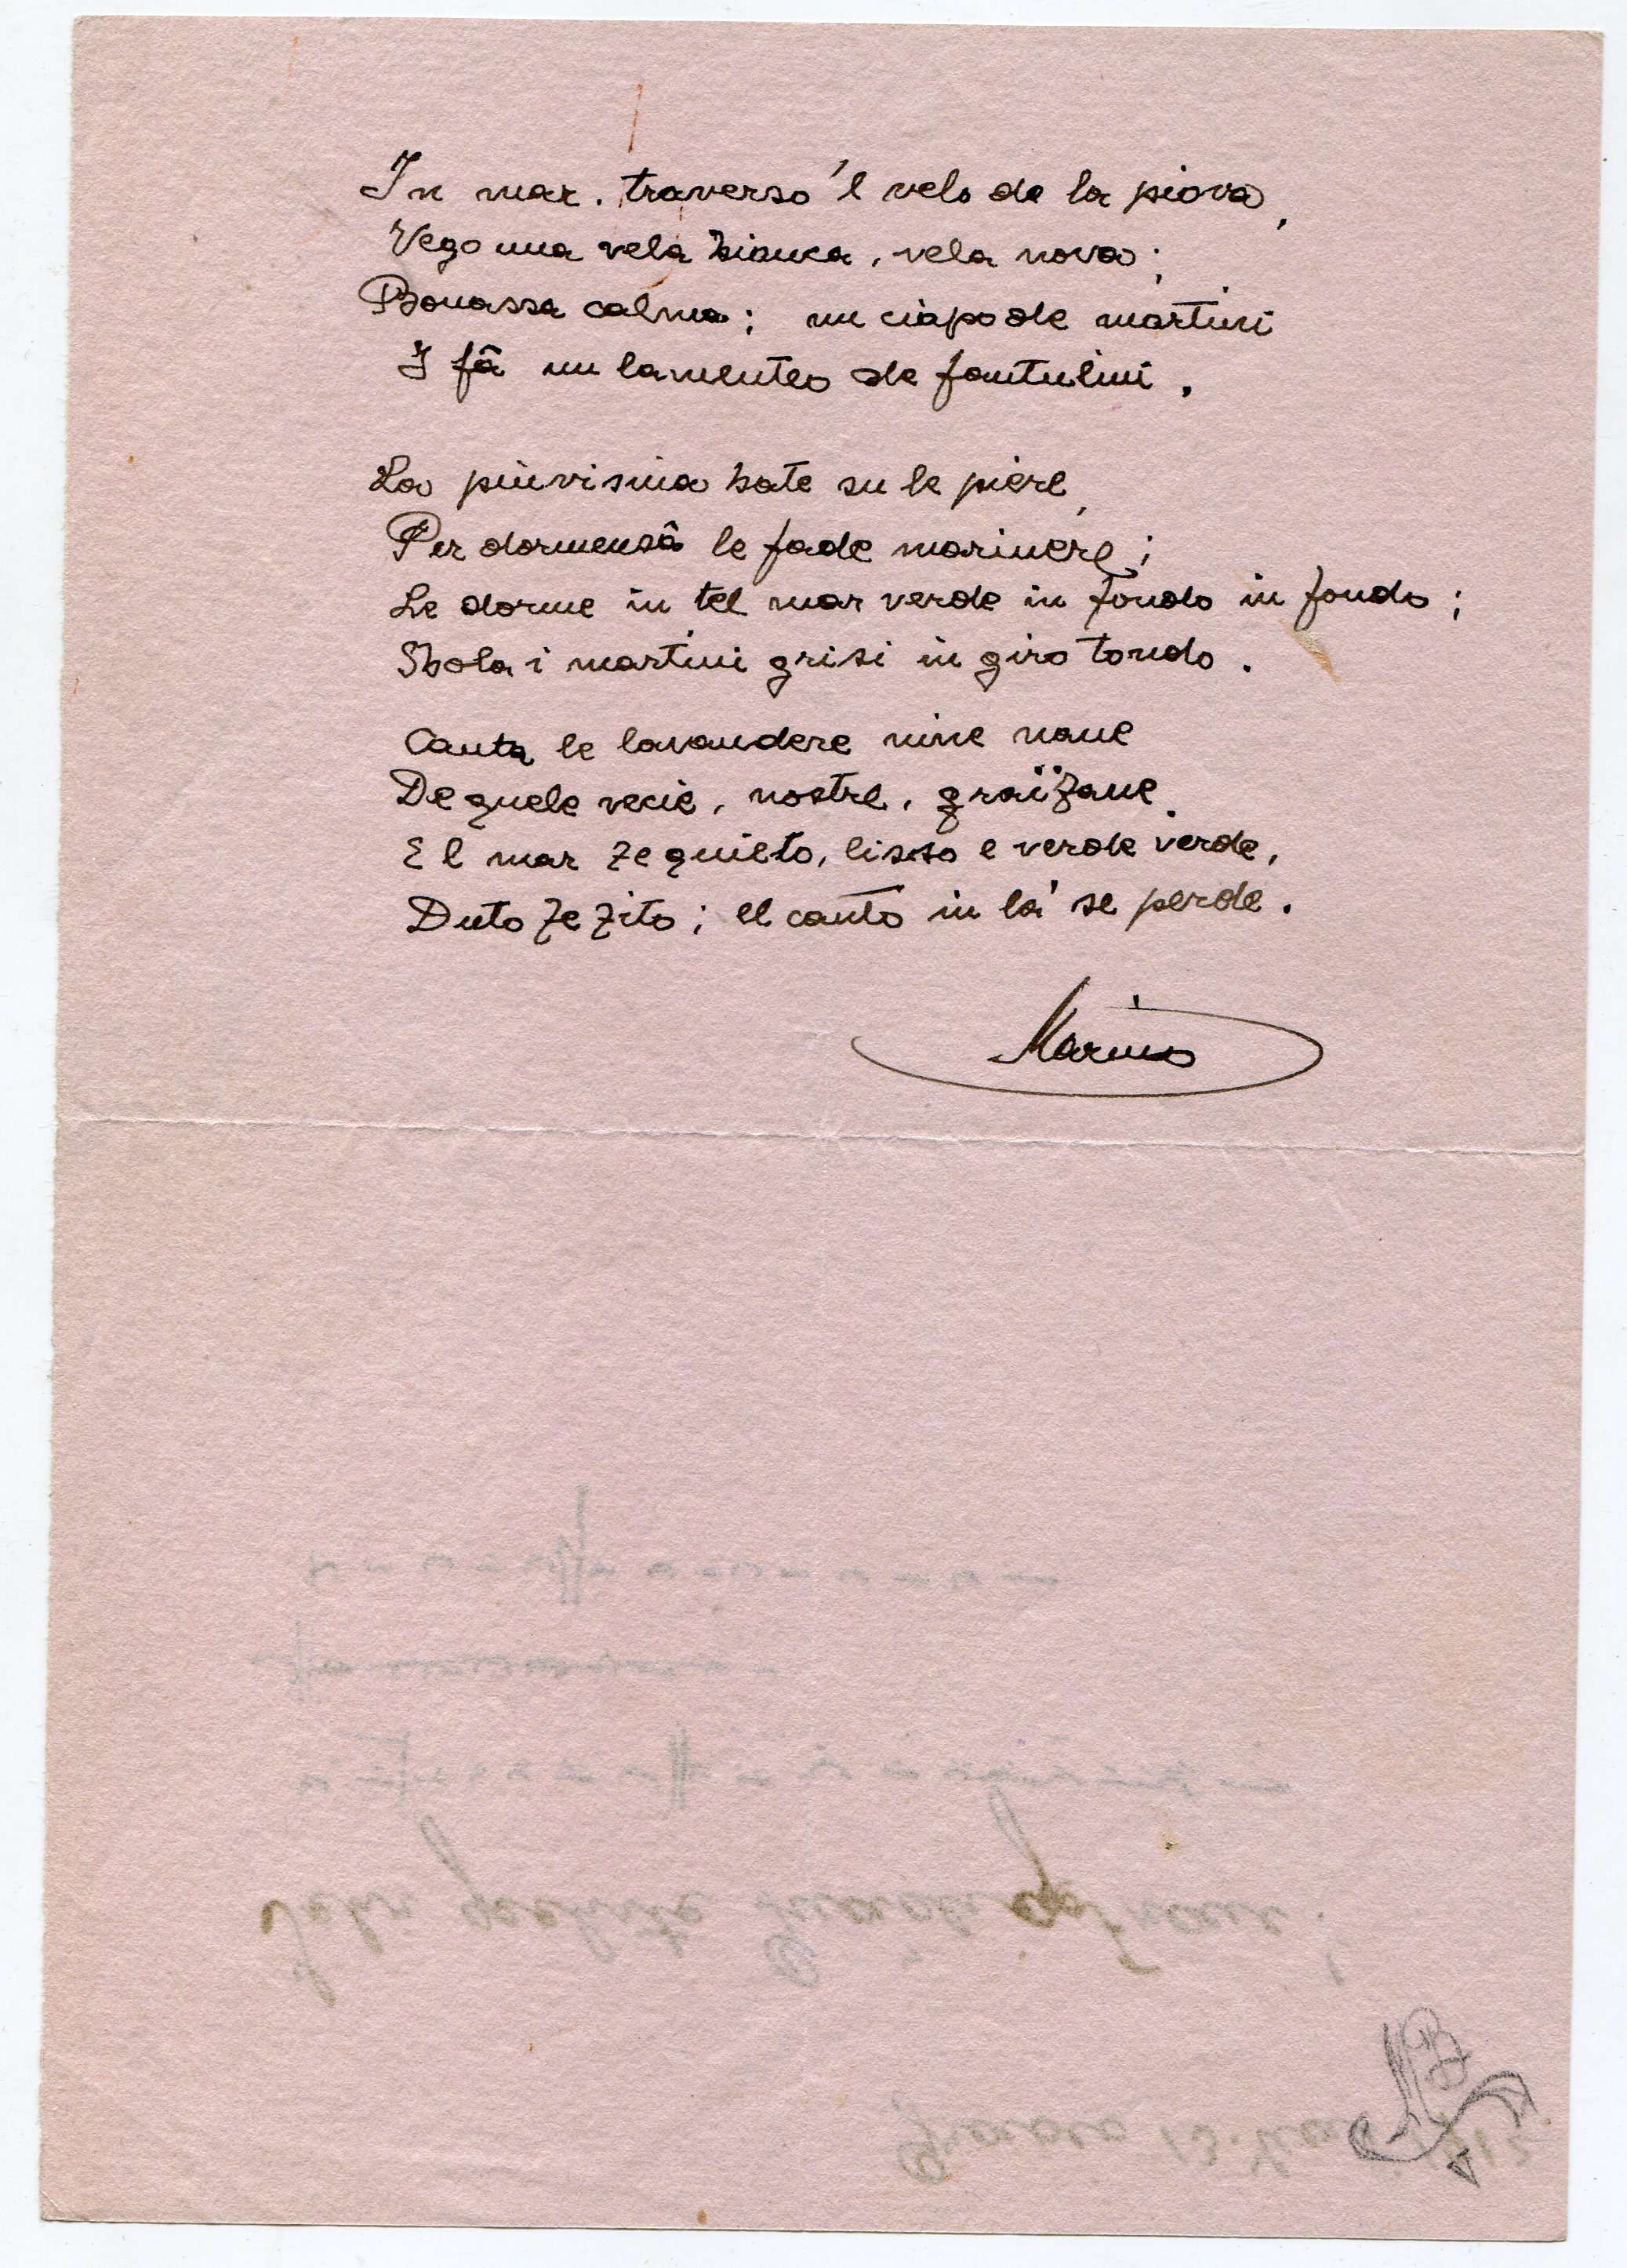 In mar. traverso 'l velo de la piova,
Vego una vela bianca, vela nova;
Bonassa calma; un ciapo de martini
I fâ un lamenteo de fantulini.
La piuvisina bate su le piere,
Per dormensâ le fade marinere;
Le dorme in tel mar verde in fondo in fondo;
Sbola i martini grisi in giro tondo.
Canta le lavandere nine nane
De quele vecie, nostre, graïzane
E l mar ze quieto, lisso e verde verde,
Duto ze zito; el canto in là se perde.
Marino